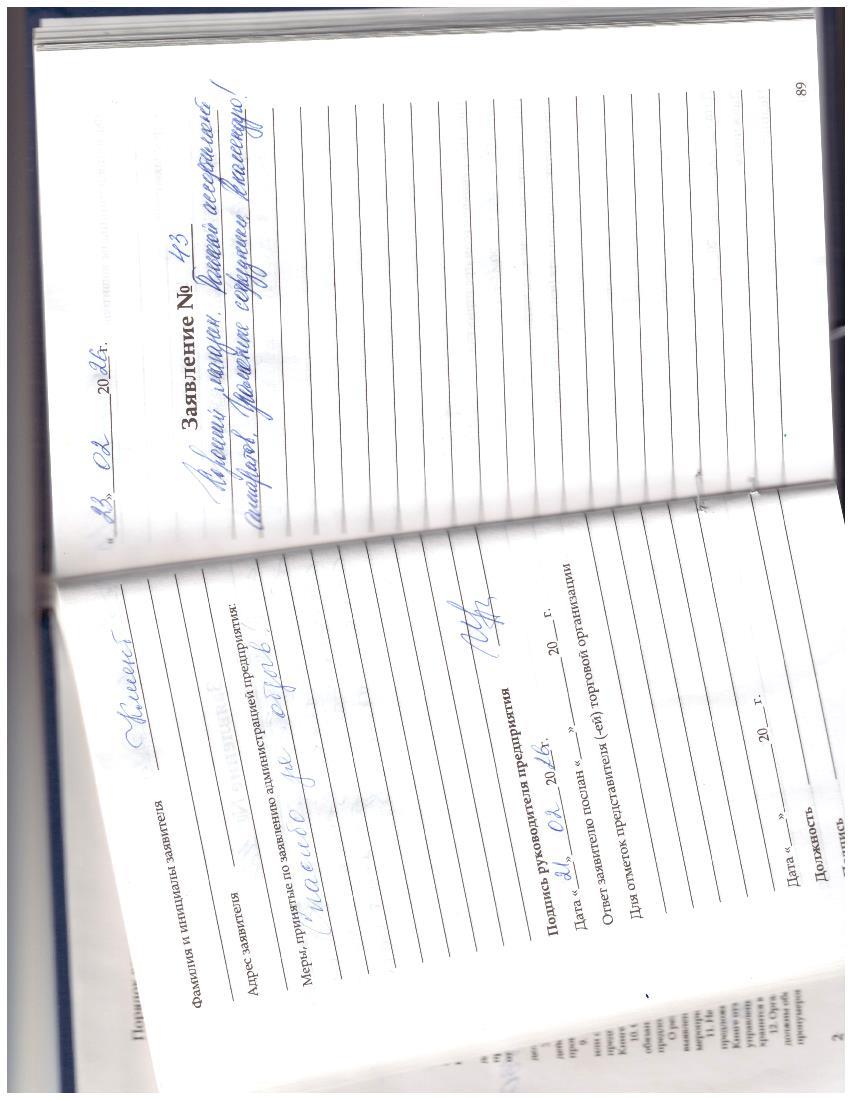 Фамилия и инициалы заявителя Клиент
Адрес заявителя
Меры, принятые по заявлению администрацией предприятия:
Спасибо за отзыв!
Подпись руководителя предприятия
Дата «21» 02 2026г.
Ответ заявителю послан «___»__________ 20___ г.
Для отметок представителя (-ей) торговой организации
Дата «___»__________ 20___ г.
Должность
Подпись
2
«23» 02 2026г.
Заявление № 43
Хороший магазин. Большой ассортимент
аппаратов. Грамотные сотрудники. Рекомендую!
89